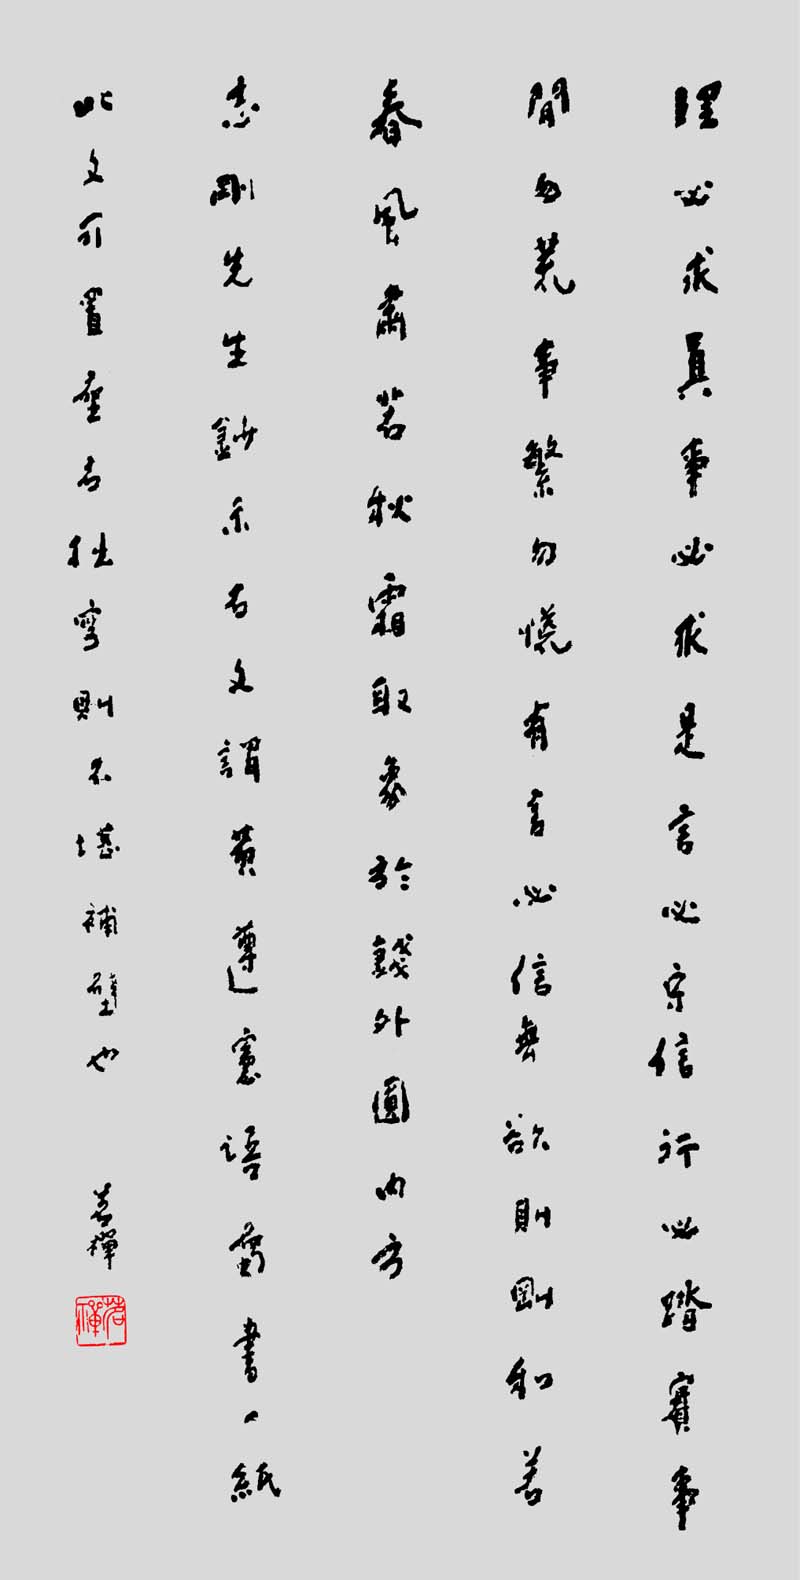 理必求眞事必求是言必守信行必踏實事
閒勿荒事繁勿慌有言必信無欲則剛和若
春風肅若秋霜取象於錢外圓內方
志剛先生鈔示右文謂黃遵憲語屬書一紙
此文可置座右拙寫則不堪補壁也
苦禪
苦禪